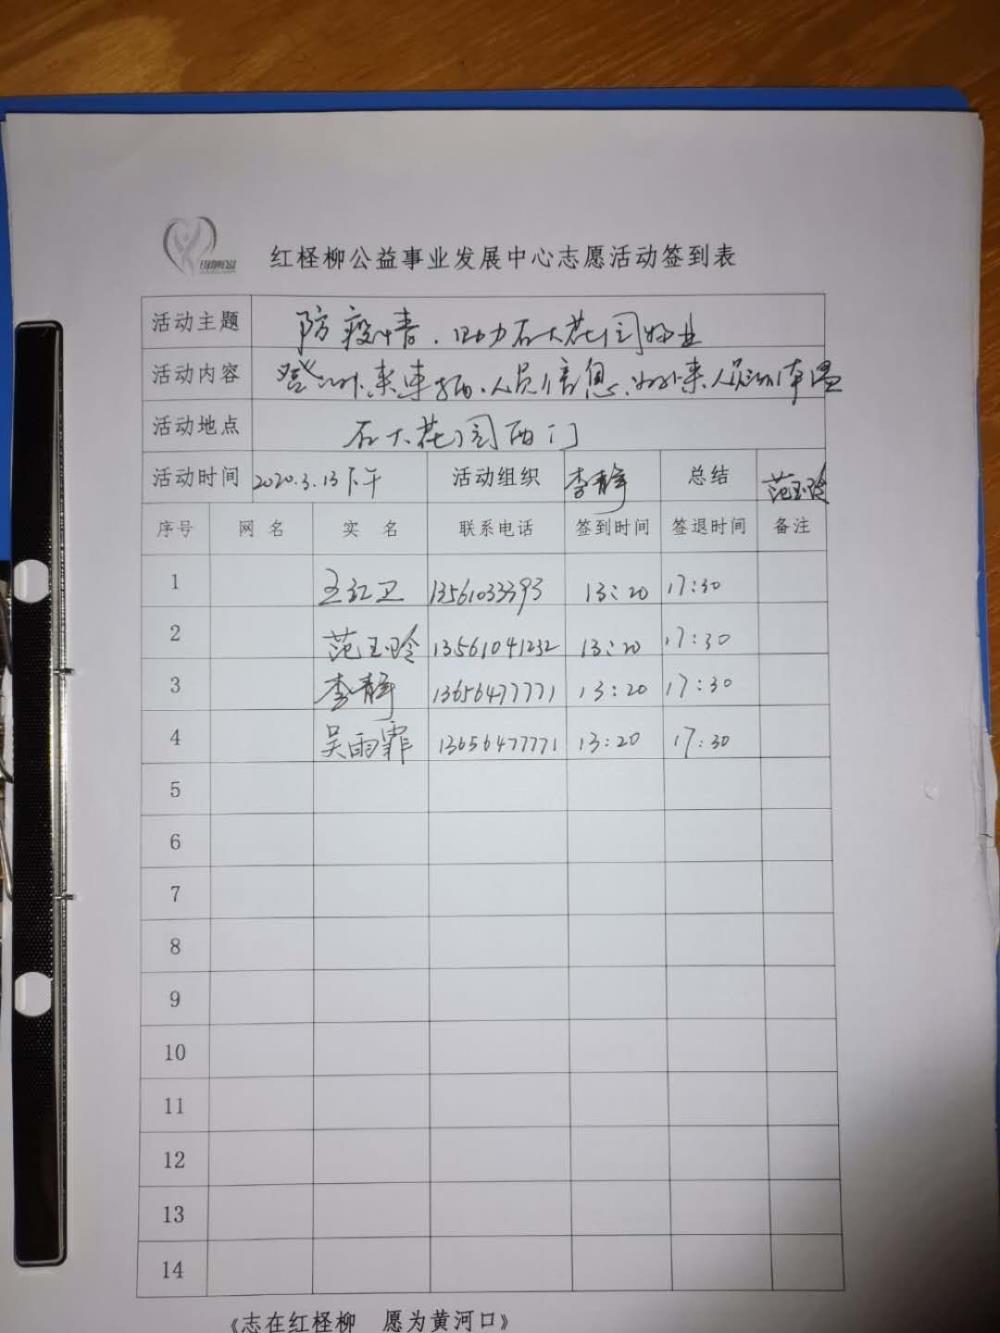 红柽柳公益事业发展中心志愿活动签到表
活动主题 防疫情.助力石大花园物业
活动内容 登记外来车辆、人员信息、外来人员测体温
活动地点 石大花园西门
活动时间 2020.3.13下午 活动组织 李静 总结 范玉玲
序号 网名 实名 联系电话 签到时间 签退时间 备注
1 王红卫 13561033393 13:20 17:30
2 范玉玲 13561041232 13:20 17:30
3 李静 13656477771 13:20 17:30
4 吴雨霏 13656477771 13:20 17:30
5
6
7
8
9
10
11
12
13
14
《志在红柽柳 愿为黄河口》